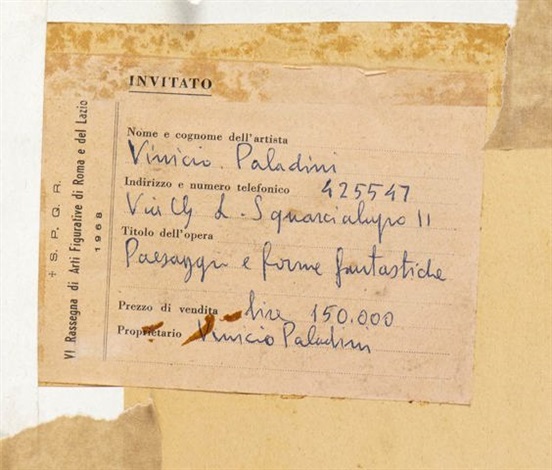 † S. P. Q. R.
VI Rassegna di Arti Figurative di Roma e del Lazio
1968
INVITATO
Nome e cognome dell'artista
Vinicio Paladini
Indirizzo e numero telefonico 425547
Via L. Squarcialupo 11
Titolo dell'opera
Paesaggi e forme fantastiche
Prezzo di vendita lire 150.000
Proprietario Vinicio Paladini